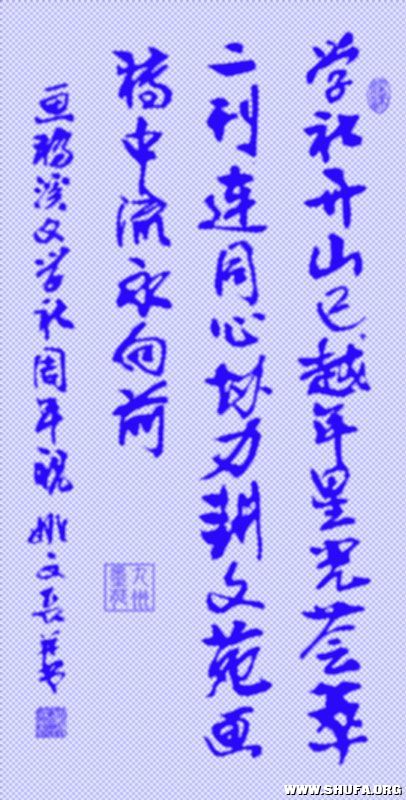 学社开山已越年星光荟萃
二刊连同心协力耕文苑画
稿中流永向前
画稿溪文学社周年 文 并书
WWW.SHUFA.ORG